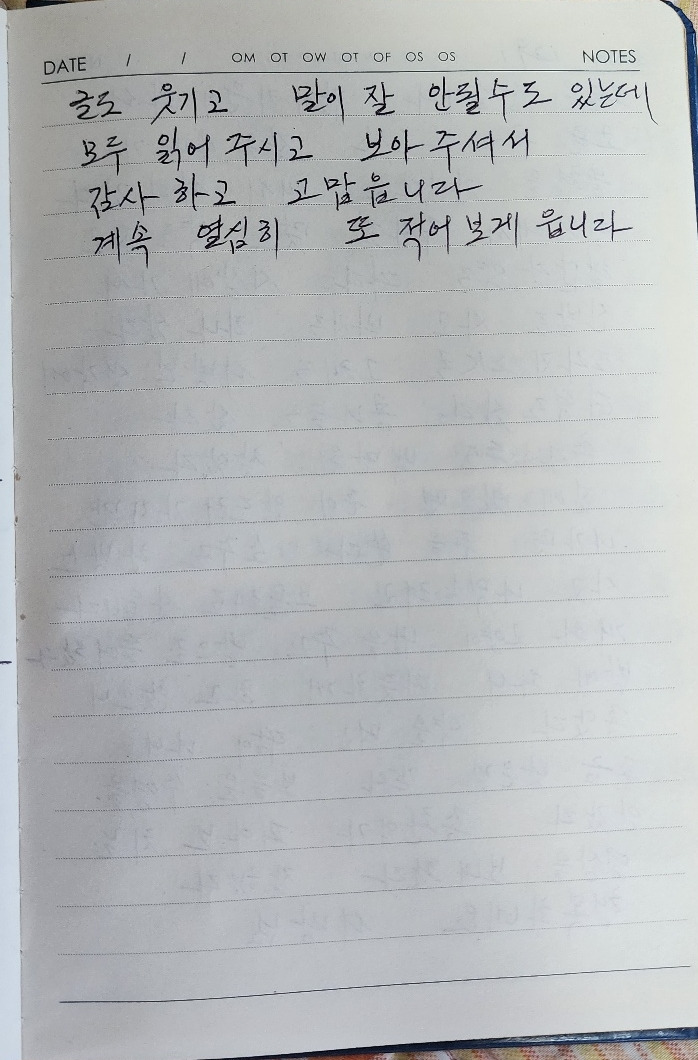 DATE / / OM OT OW OT OF OS OS NOTES
글도 웃기고 말이 잘 안될수도 있는데
모두 읽어 주시고 보아 주셔서
감사 하고 고맙읍니다
계속 열심히 또 적어 보게 읍니다